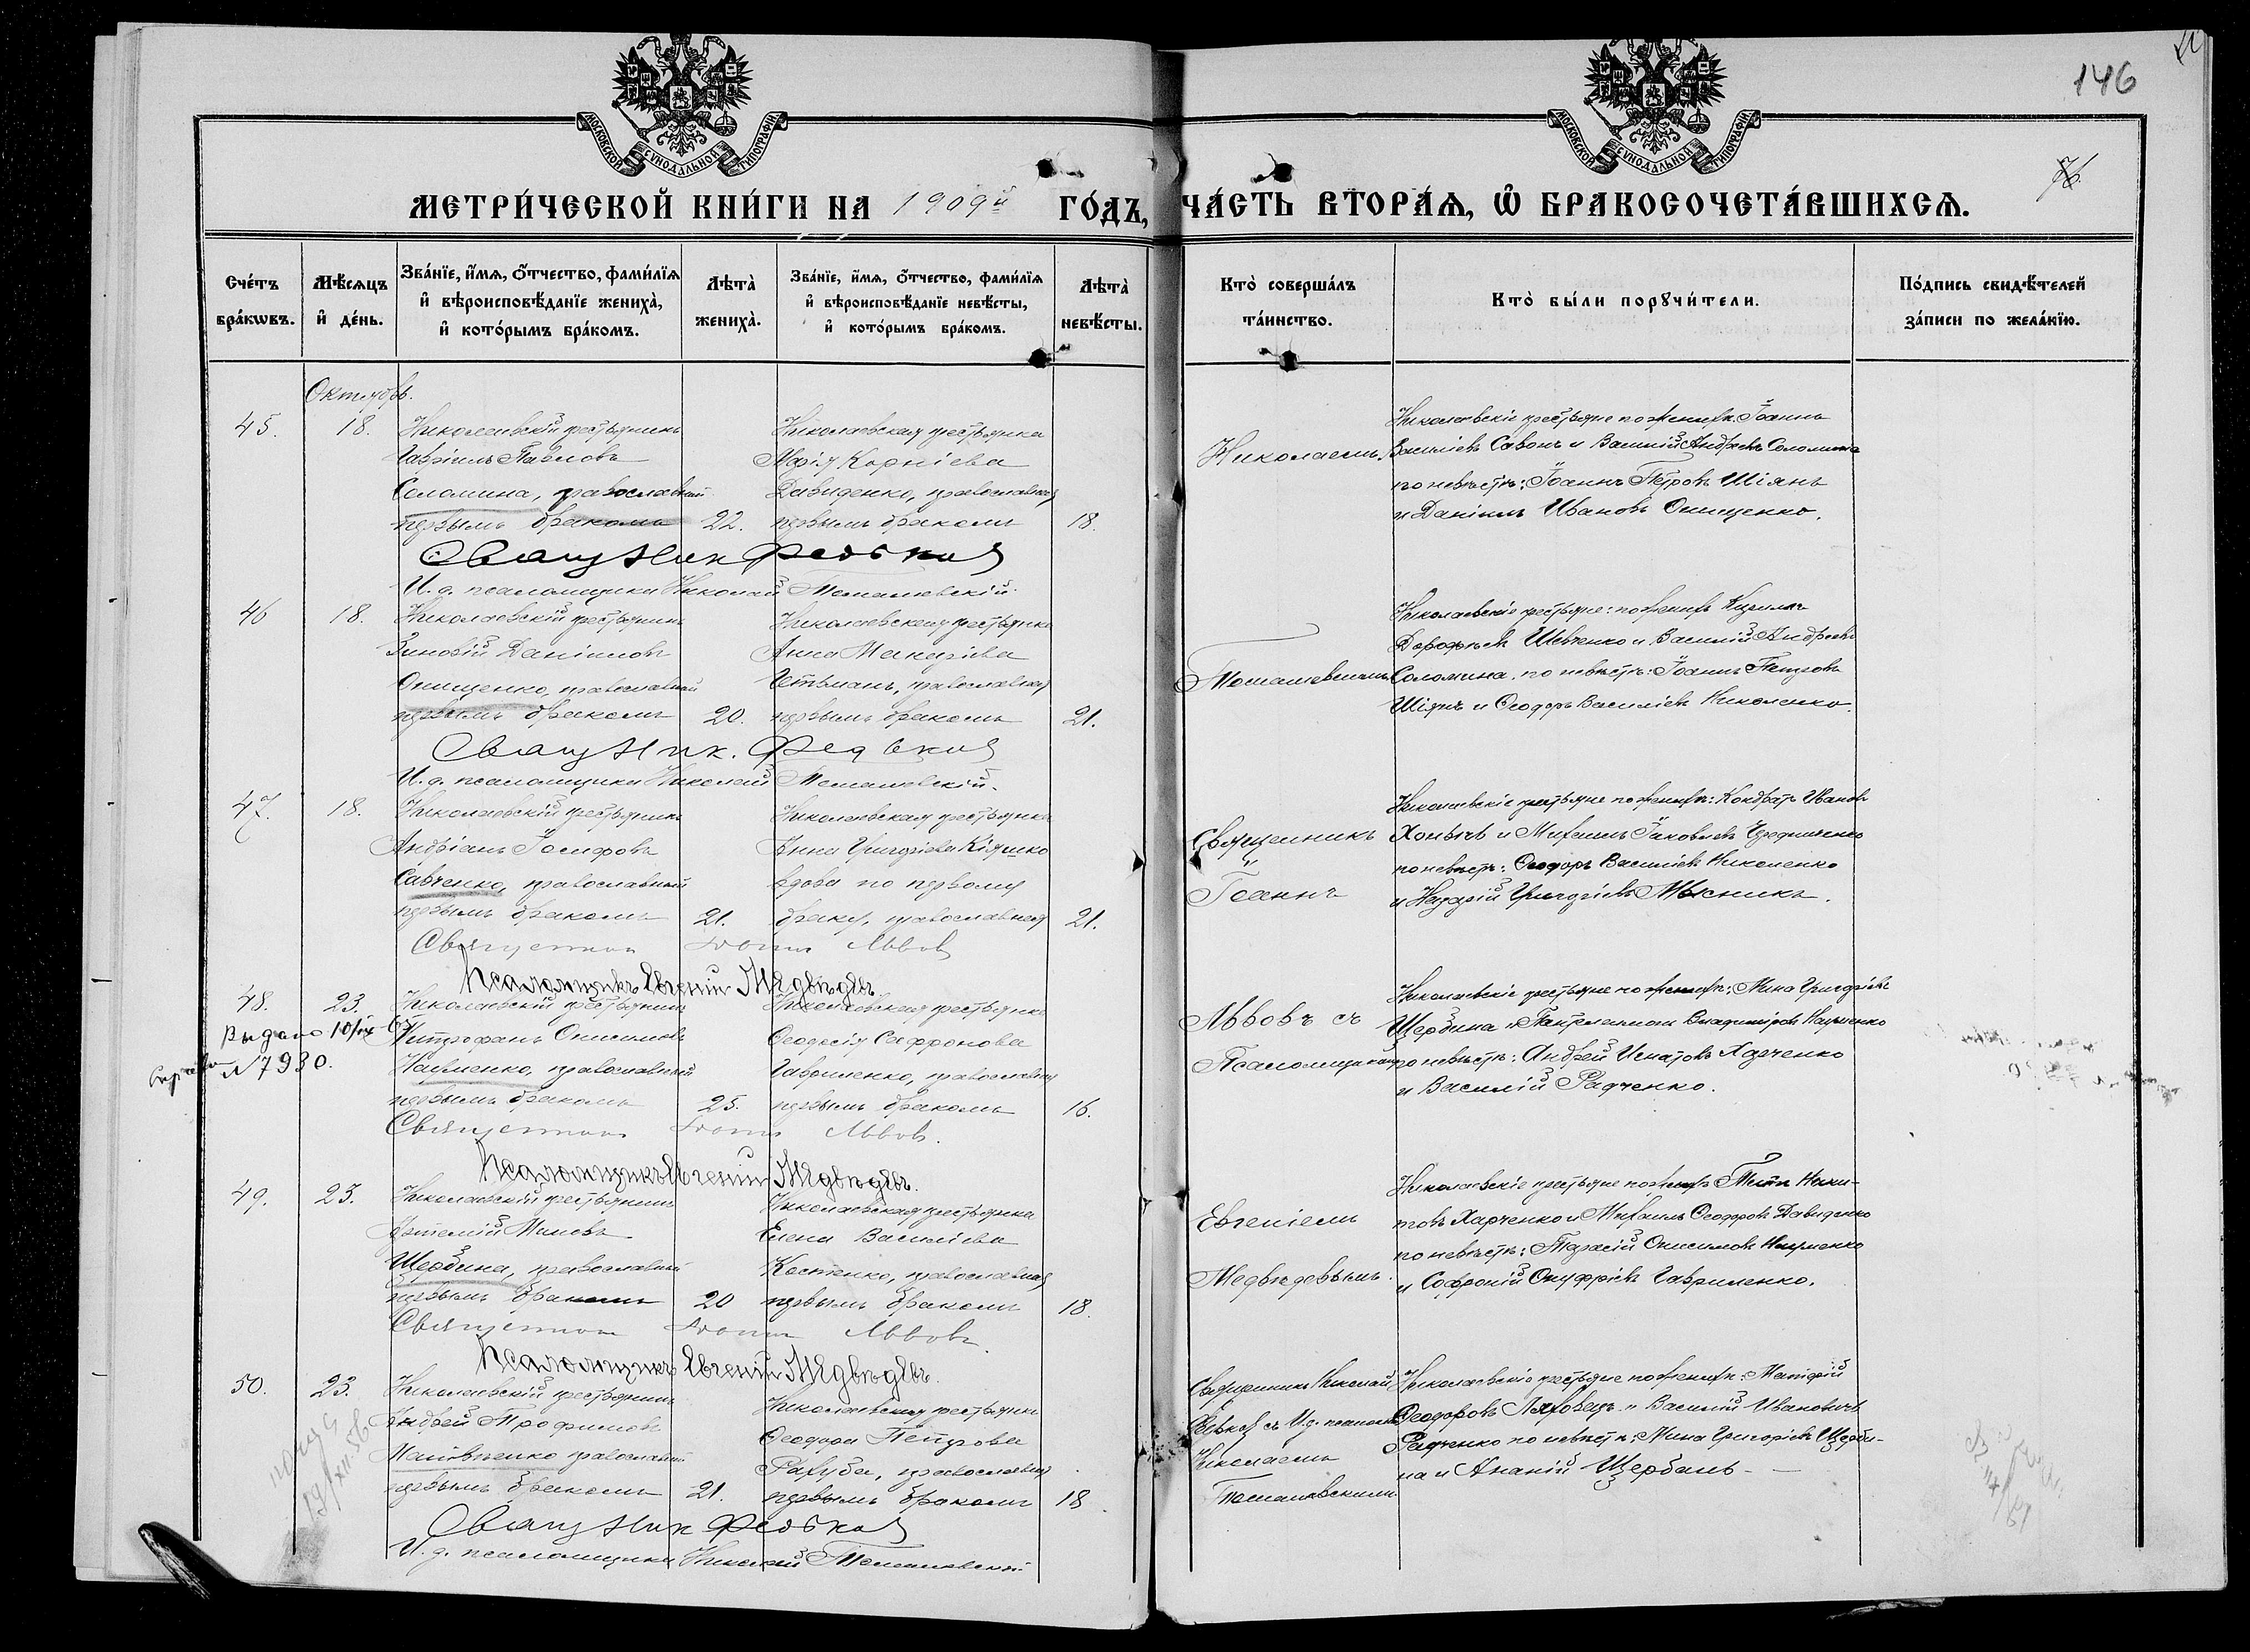 146
МОСКОВСКОЙ СѴНОДАЛЬНОЙ ТИПОГРАФІИ
МОСКОВСКОЙ СѴНОДАЛЬНОЙ ТИПОГРАФІИ
76
МЕТРИ́ЧЕСКОЙ КНИ́ГИ НА 1909й ГО́ДЪ, ЧА́СТЬ ВТОРА́Ѧ, Ѽ БРАКОСОЧЕТА́ВШИХСѦ.
Сче́тъ бра́кѡвъ.
Мѣ́сѧцъ и҆ де́нь.
Зва́нїе, и҆́мѧ, ѻ҆́тчество, фами́лїѧ и҆ вѣроисповѣ́данїе жениха̀, и҆ кото́рымъ бра́комъ.
Лѣта̀ жениха̀.
Зва́нїе, и҆́мѧ, ѻ҆́тчество, фами́лїѧ и҆ вѣроисповѣ́данїе невѣ́сты, и҆ кото́рымъ бра́комъ.
Лѣта̀ невѣ́сты.
Кто̀ соверша́лъ та́инство.
Кто̀ бы́ли порꙋчи́тели.
По́дпись свидѣ́телей за́писи по жела́нїю.
Октябрь.
45.
18.
Николаевскій крестьянинъ
Гавріилъ Павловъ
Соломина, православный
первымъ бракомъ
22.
Николаевская крестьянка
Марія Корніева
Давиденко, православная
первымъ бракомъ
18.
Николаемъ
Николаевскіе крестьяне по женихѣ: Іоаннъ
Василіевъ Савонъ и Василій Андреевъ Соломина
по невѣстѣ: Іоаннъ Петровъ Шіянъ
и Даніилъ Ивановъ Онищенко.
Священник Федьков
И. д. псаломщика Николай Томашевскій
46
18.
Николаевскій крестьянинъ
Зиновій Даніиловъ
Онищенко, православный
первымъ бракомъ
20.
Николаевская крестьянка
Анна Макаріева
Гетьманъ, православная
первымъ бракомъ
21.
Томашевскимъ
Николаевскіе крестьяне: по женихѣ Кириллъ
Дорофеевъ Шевченко и Василій Андреевъ
Соломина, по невѣстѣ: Іоаннъ Петровъ
Шіянъ и Ѳеодоръ Василіевъ Николенко.
Священник. Федьков
И. д. псаломщика Николай Томашевскій.
47.
18.
Николаевскій крестьянинъ
Андріанъ Іосифовъ
Савченко, православный
первымъ бракомъ
21.
Николаевская крестьянка
Анна Григоріева Кіяшко
вдова по первому
браку, православная
21.
Священникъ
Іоаннъ
Николаевскіе крестьяне по женихѣ: Кондратъ Ивановъ
Хомычъ и Михаилъ Іаковлевъ
по невѣстѣ: Ѳеодоръ Василіевъ Николенко
и Назарій Григоріевъ Мѣсникъ.
Священник Иоанн Львов
Псаломщикъ Евгеній Медвѣдевъ
48.
23.
Выдано 10/IX
Справка N 7930.
Николаевскій крестьянинъ
Митрофанъ Онисимовъ
Науменко, православный
первымъ бракомъ
25.
Николаевская крестьянка
Ѳеодосія Сафронова
Гавриленко, православная
первымъ бракомъ
16.
Львовъ съ
Псаломщикомъ
Николаевскіе крестьяне по женихѣ: Мина Григоріевъ
Щербина и Пантелеимонъ Владиміровъ Науменко
по невѣстѣ: Андрей Игнатовъ Харченко
и Василій Радченко.
Священник Иоанн Львов.
Псаломщикъ Евгеній Медвѣдевъ.
49.
23.
Николаевскій крестьянинъ
Артемій Миновъ
Щербина, православный
первымъ бракомъ
20
Николаевская крестьянка
Елена Василіева
Костенко, православная
первымъ бракомъ
18.
Евгеніемъ
Медвѣдевымъ.
Николаевскіе крестьяне по женихѣ Титъ Ники-
товъ Харченко и Михаилъ Ѳеодоровъ Давиденко
по невѣстѣ: Тарасій Онисимовъ Науменко
и Софроній Онуфріевъ Гавриленко.
Священник Иоанн Львов.
Псаломщикъ Евгеній Медвѣдевъ.
50.
23.
Николаевскій крестьянинъ
Андрей Трофимовъ
Матвѣенко православный
первымъ бракомъ
21.
Николаевская крестьянка
Ѳеодора Петрова
Рахуба, православная
первымъ бракомъ
18
Священникъ Николай
Федьковъ съ И. д. псаломщ.
Николаемъ
Томашевскимъ
Николаевскіе крестьяне по женихѣ: Матфей
Ѳеодоровъ Ляховецъ и Василій Ивановичъ
Радченко по невѣстѣ: Мина Григоріевъ Щерби-
на и Ананій Щербань.
Священник Федьков
И. д. псаломщика Николай Томашевскій